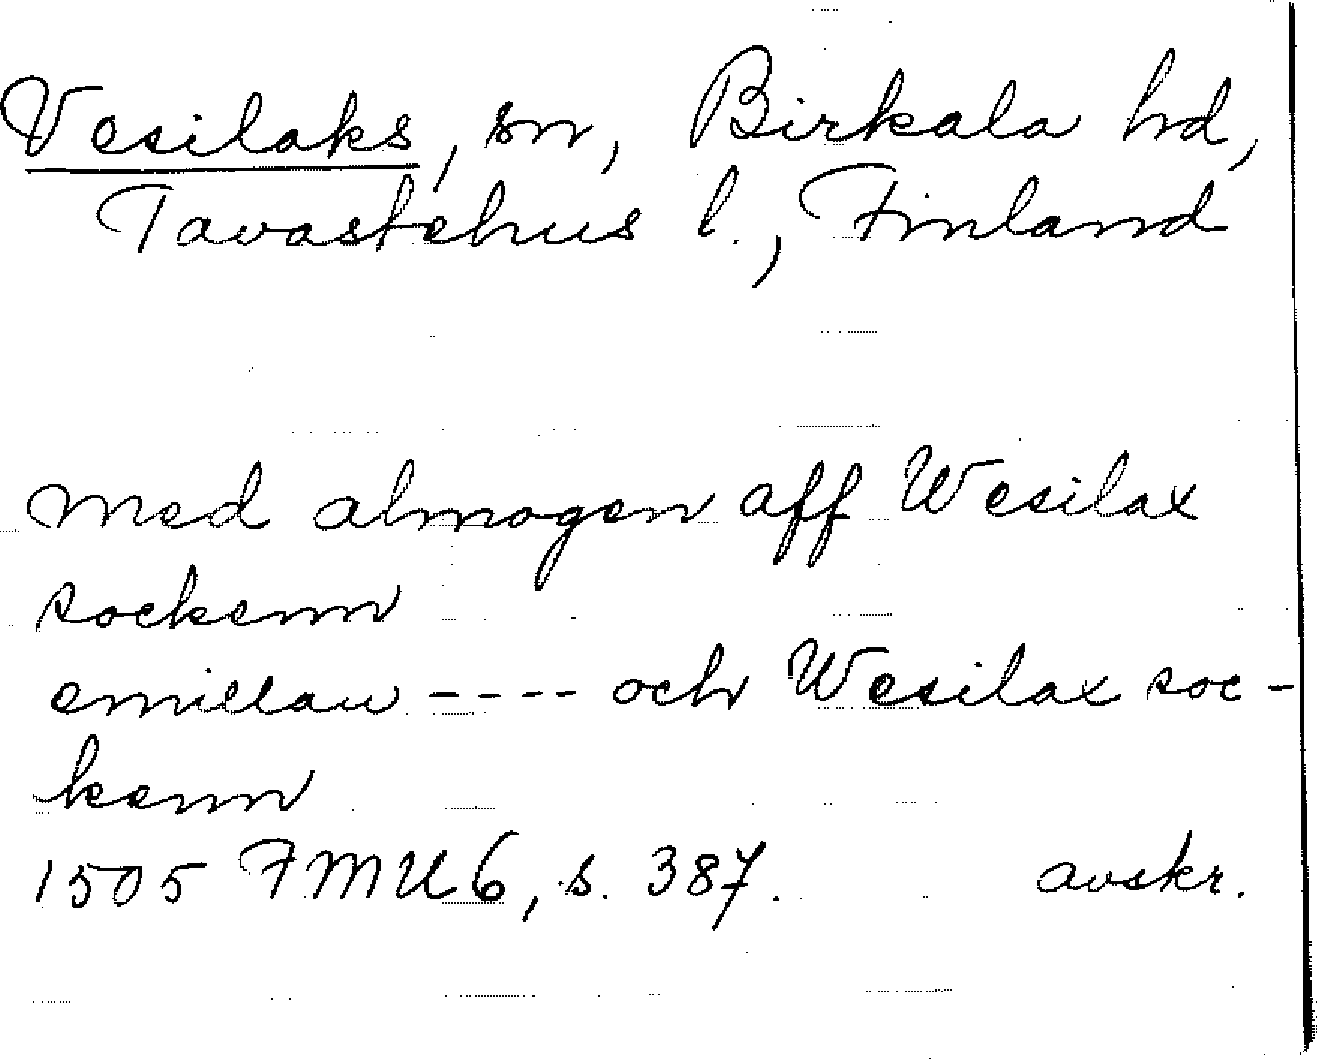 Vesilaks, sn, Birkala hd,
Tavastehus l., Finland
med almogen aff Wesilax
sockenn
emillan ---- och Wesilax soc-
kenn
1505 FMU 6, s. 387. avskr.